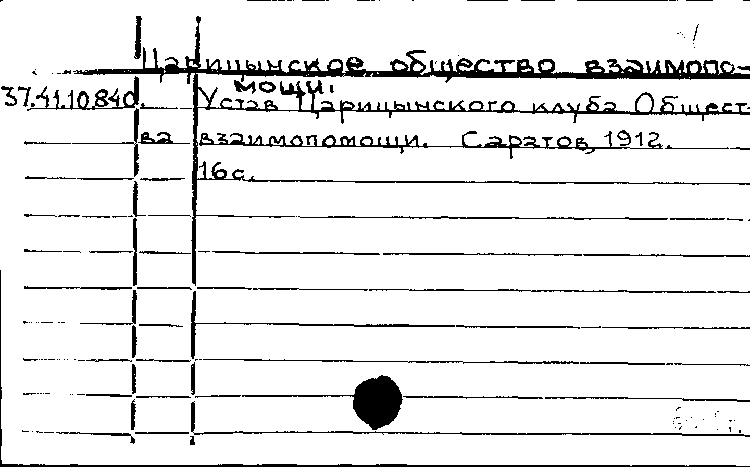 Царицынское общество взаимопо-
мощи.
37.41.10.840. Устав Царицынского клуба Общест-
ва взаимопомощи. Саратов, 1912.
16 с.